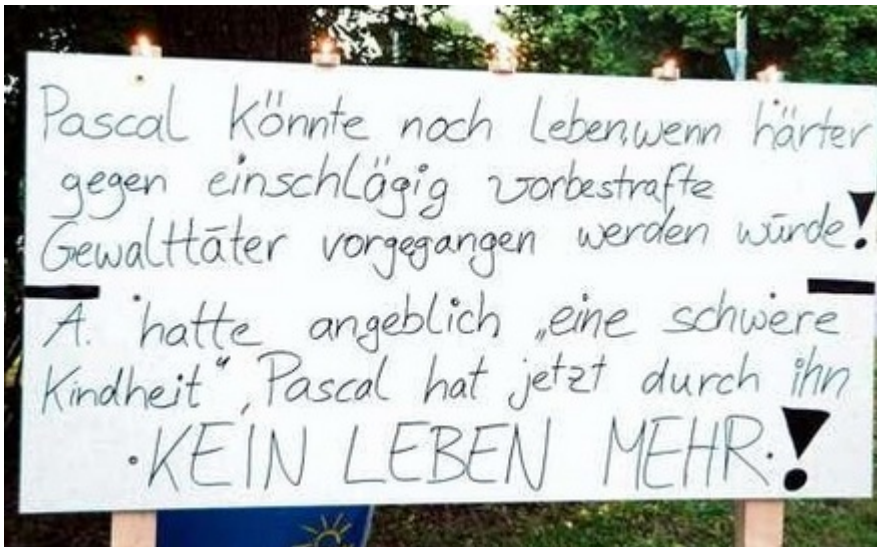 Pascal könnte noch Leben,wenn härter
gegen einschlägig vorbestrafte
Gewalttäter vorgegangen werden würde!
A. hatte angeblich „eine schwere
Kindheit“, Pascal hat jetzt durch ihn
KEIN LEBEN MEHR!